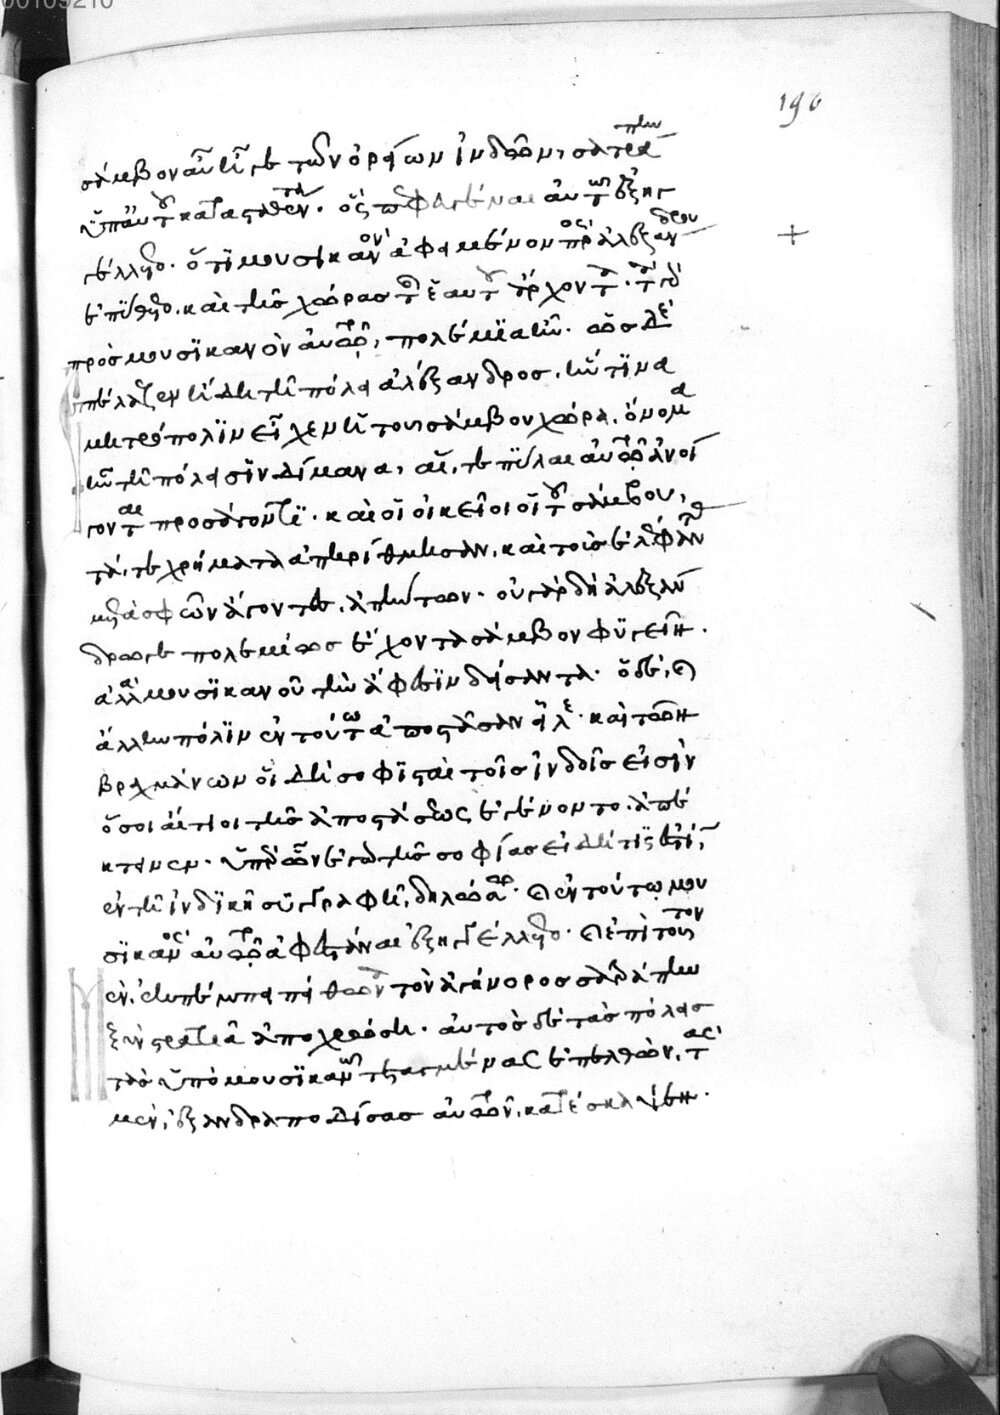 196
σάμβον αὖ τῆς γε τῶν ὀρείων ἰνδῶν, σατράπην
ὑπ' αὐτοῦ κατασταθέντα. ὃς πεφευγέναι αὐτῷ ἐξηγ
γέλλετο. ὅτι μουσικανὸν ἀφειμένον πρὸς ἀλεξάνδρου
ἐπύθετο. καὶ τῆς χώρας τῆς ἑαυτοῦ ἄρχοντα. τὰ γὰρ
πρὸς μουσικανὸν αὐτῷ, πολέμια ἦν. ὡς δὲ
ἐπέλαζεν ἤδη τῇ πόλει ἀλέξανδρος, ἥντινα
μητρόπολιν εἶχεν ἡ τοῦ σάμβου χώρα, ὄνομα
ἦν τῇ πόλει σινδίμανα, αἵ, τε πύλαι αὐτῷ ἀνοί
γονται προσάγοντι. καὶ οἱ οἰκεῖοι οἱ τοῦ σάμβου,
τά, τε χρήματα ἀπηρίθμησαν, καὶ τοὺς ἐλέφαντας
μετὰ σφῶν ἄγοντες, ἀπήντων. οὐ γὰρ δὴ ἀλεξάν
δρῳ γε πολεμίως ἔχοντα σάμβον φυγεῖν.
ἀλλὰ μουσικανοῦ τὴν ἄφεσιν δείσαντα. ὁ δὲ, καὶ
ἄλλην πόλιν ἐν τούτῳ ἀποστᾶσαν εἷλε. καὶ τῶν
βραχμάνων οἳ δὴ σοφισταὶ τοῖς ἰνδοῖς εἰσὶν
ὅσοι αἴτιοι τῆς ἀποστάσεως ἐγένοντο, ἀπέ
κτεινεν. ὑπὲρ ὧν ἐγὼ τῆς σοφίας εἰ δή τίς ἐστιν,
ἐν τῇ ἰνδικῇ συγγραφῇ, δηλώσω. καὶ ἐν τούτῳ μου
σικανὸς αὐτῷ ἀφεστάναι ἐξηγγέλλετο. καὶ ἐπὶ τοῦτον
ἐκπέμπει πείθωνα τὸν ἀγήνορος σατράπην
ξὺν στρατιᾷ ἀποχρώσῃ. αὐτὸς δὲ τὰς πόλεις
τὰς ὑπὸ μουσικανῷ τεταγμένας ἐπελθὼν, τὰς
μὲν, ἐξανδραποδίσας αὐτῶν, κατέσκαψεν.